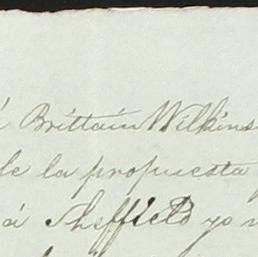 Brittain Wilkins
de la propuesta
á Sheffield yo